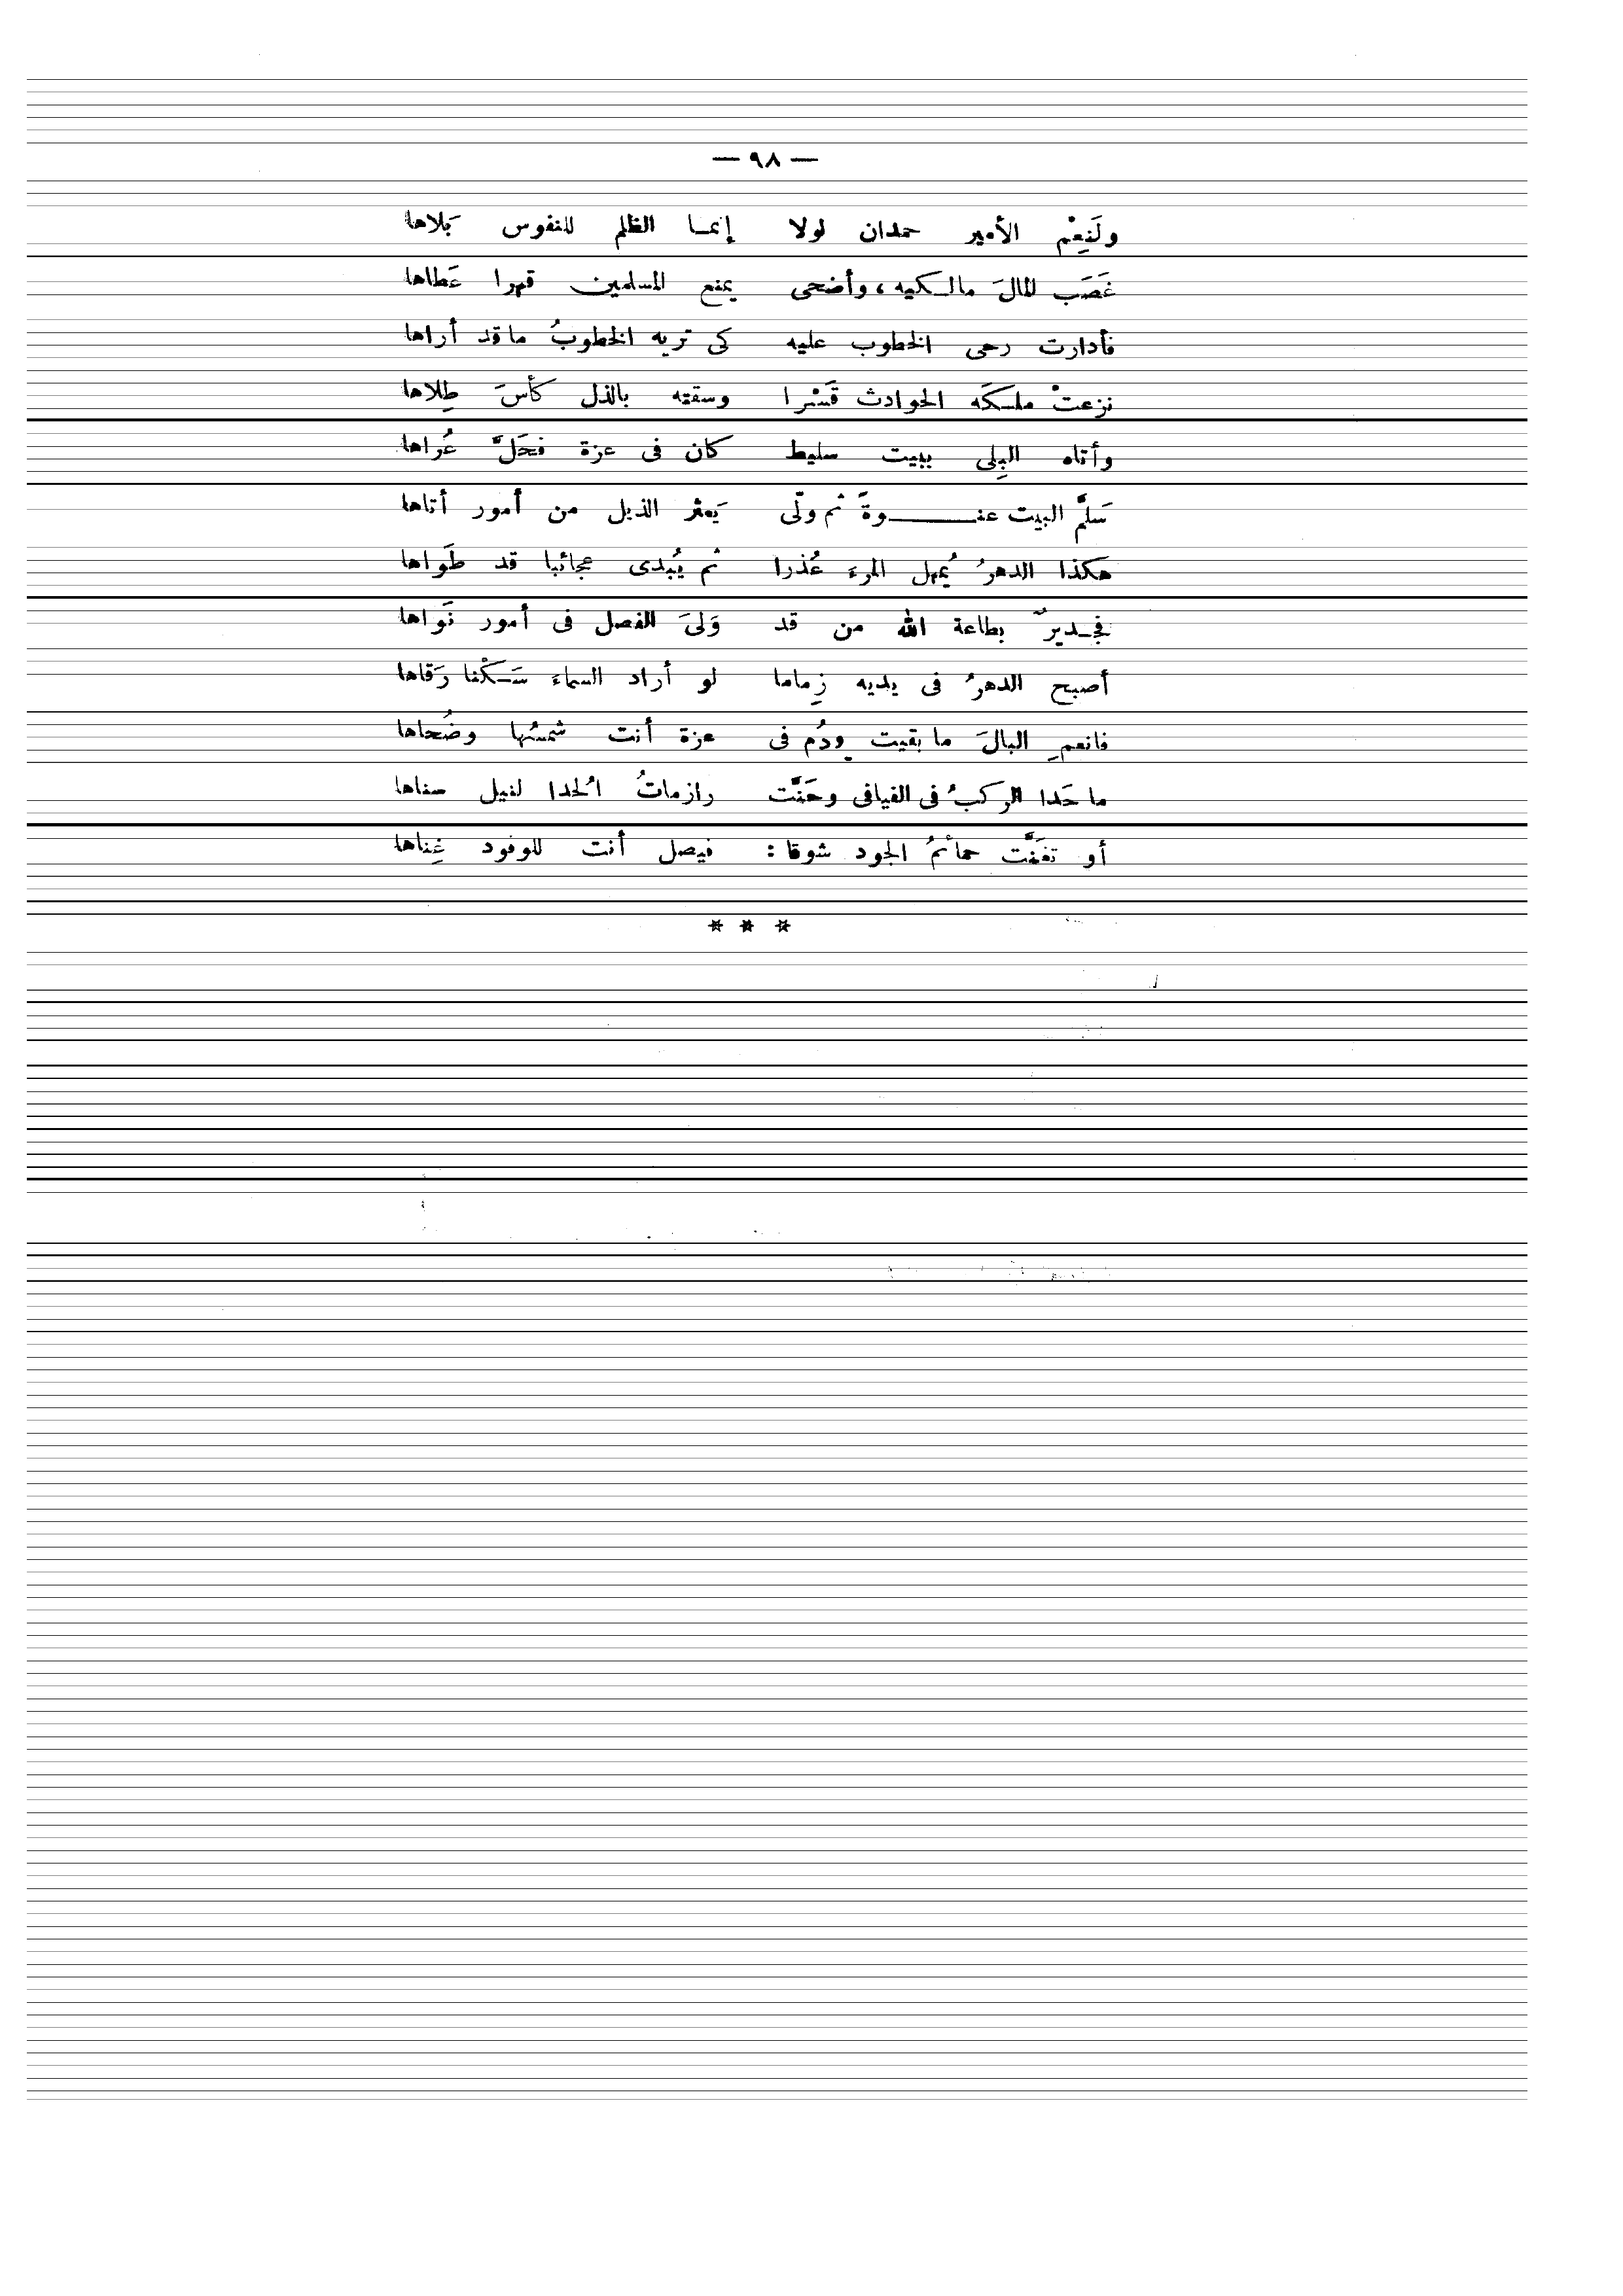 — ٩٨ —
ولَنَعِْم الأمير حمدان لولا إنمـا الظلم للنفوس بَلاها
غَصَب المالَ مالـكيه ، وأضحى يمنع المسلمين قهرا عَطاها
فأدارت رحى الخطوب عليه كى تريه الخطوبُ ما قد أراها
نزعتْ ملـكَه الحوادث قَسْرا وسقته بالذل كأسَ طِلاها
وأتاه البِلى ببيت سليط كان فى عزة فحَلَّ عُراها
سَلَّم البيت عنـــــوةً ثم ولّى يَعثر الذيل من أمور أتاها
هكذا الدهرُ يُمهل المرءَ عُذرا ثم يُبدى عجائبا قد طَواها
فجـديرٌ بطاعة الله من قد وَلىَ الفصل فى أمور نَواها
أصبح الدهرُ فى يديه زِماما لو أراد السماءَ سَـكْنا رَقاها
فانعمِ البالَ ما بقيت ودُم فى عزة أنت شمسُها وضُحاها
ما حَدا الركبُ فى الفيافى وحَنَّت رازماتُ الُحدا لنيل مناها
أو تغَنَّت حمائمُ الجود شوقا : فيصل أنت للوفود غِناها
* * *